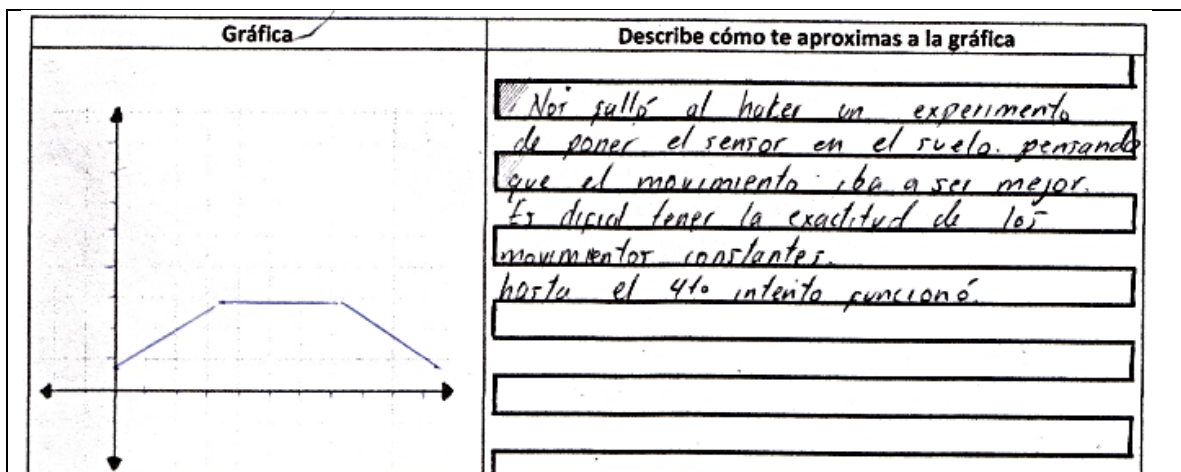 Gráfica
Describe cómo te aproximas a la gráfica
Nos falló al hacer un experimento
de poner el sensor en el suelo. pensando
que el movimiento iba a ser mejor.
Es dificil tener la exactitud de los
movimientos constantes.
hasta el 4to intento funcionó.